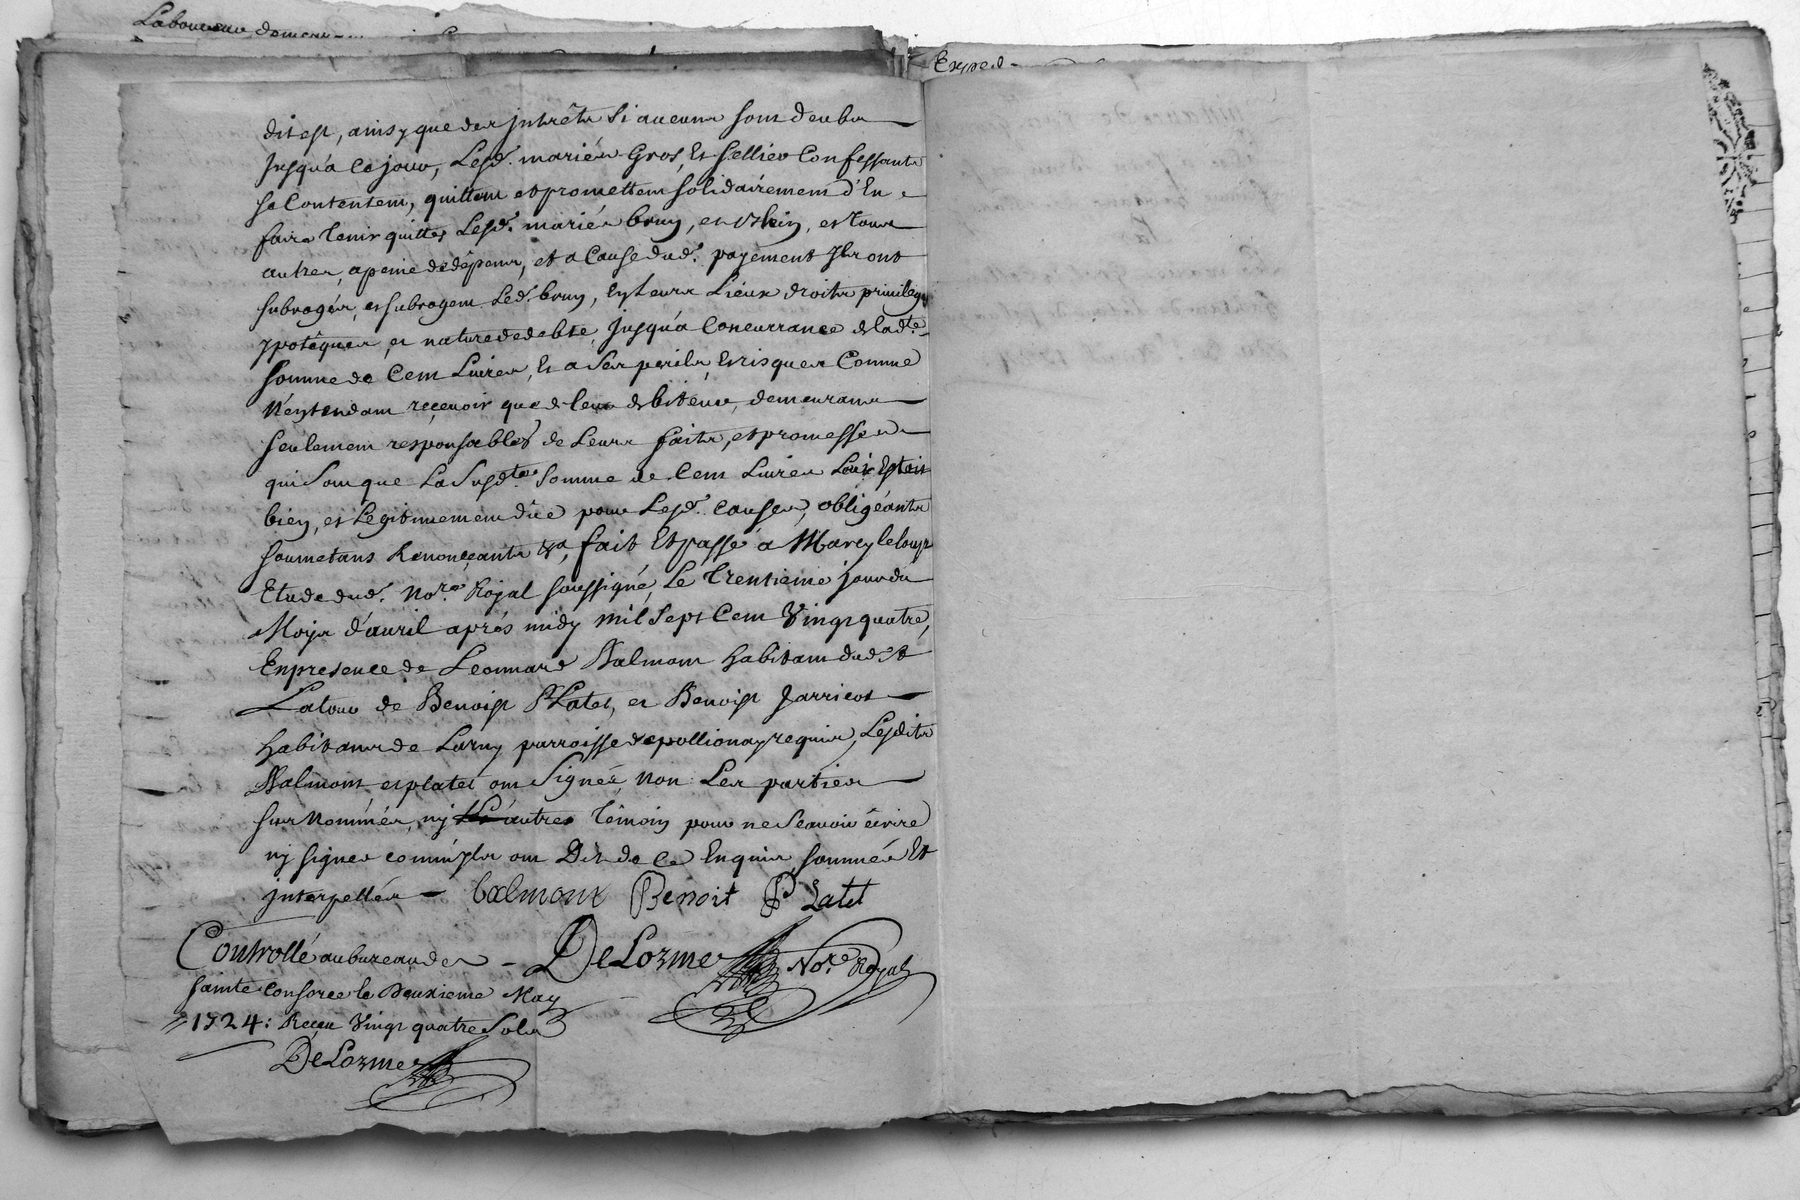 Laboureur demeur
Exped
dit est, ainsy que des jntrêts si aucuns sont deubs
jusqu'a ce jour, Lesd. mariés Gros, Et Sellier Confessants
se Contentent, quittent et promettent solidairement d'En
faire tenir quittes Lesd. mariés bruy, et et tous
autres, a peine de dêpens, et a Cause dud. payement jls ont
subrogés, et subrogent Led. bruy, En Leurs Lieux droits privileges
ypotêques, et nature de debte, jusqu'a Concurrance de lad.te
somme de Cent Livres, Et a ses perils, Et risques Comme
N'entendant reçevoir que de leur debiteur, demeurants
seulement responsables de Leurs faits, et promesses
qui sont que La Susd.te Somme de Cent Livres Leur Estoit
bien, et Legitimement dûe pour Lesd. Causes, obligéants
soumetans Renonçants &a, fait Et passé a Marcy le loup
Etude dud. No.re Royal soussigné, Le Trentieme jour du
Mois d'avril aprés midy mil Sept Cent Vingt quatre,
En presence de Leonnard Valmont habitant dud. Et
Latour de Benoist PLatet, et Benoist Jarricot
habitants de Larny parroisse de pollionay requis, Lesdits
Valmont, et platet ont Signés, Non Les parties
sus Nommées, nÿ L'autres Témoin pour ne Scavoir écrire
nÿ signer comm'jls ont Dit de ce Enquis sommés Et
jnterpellés
Valmont Benoit PLatet
DeLorme No.re Royal
Controllé au bureau de
sainte Consorce le Deuxieme May
1724: Receu Vingt quatre Sols
DeLorme